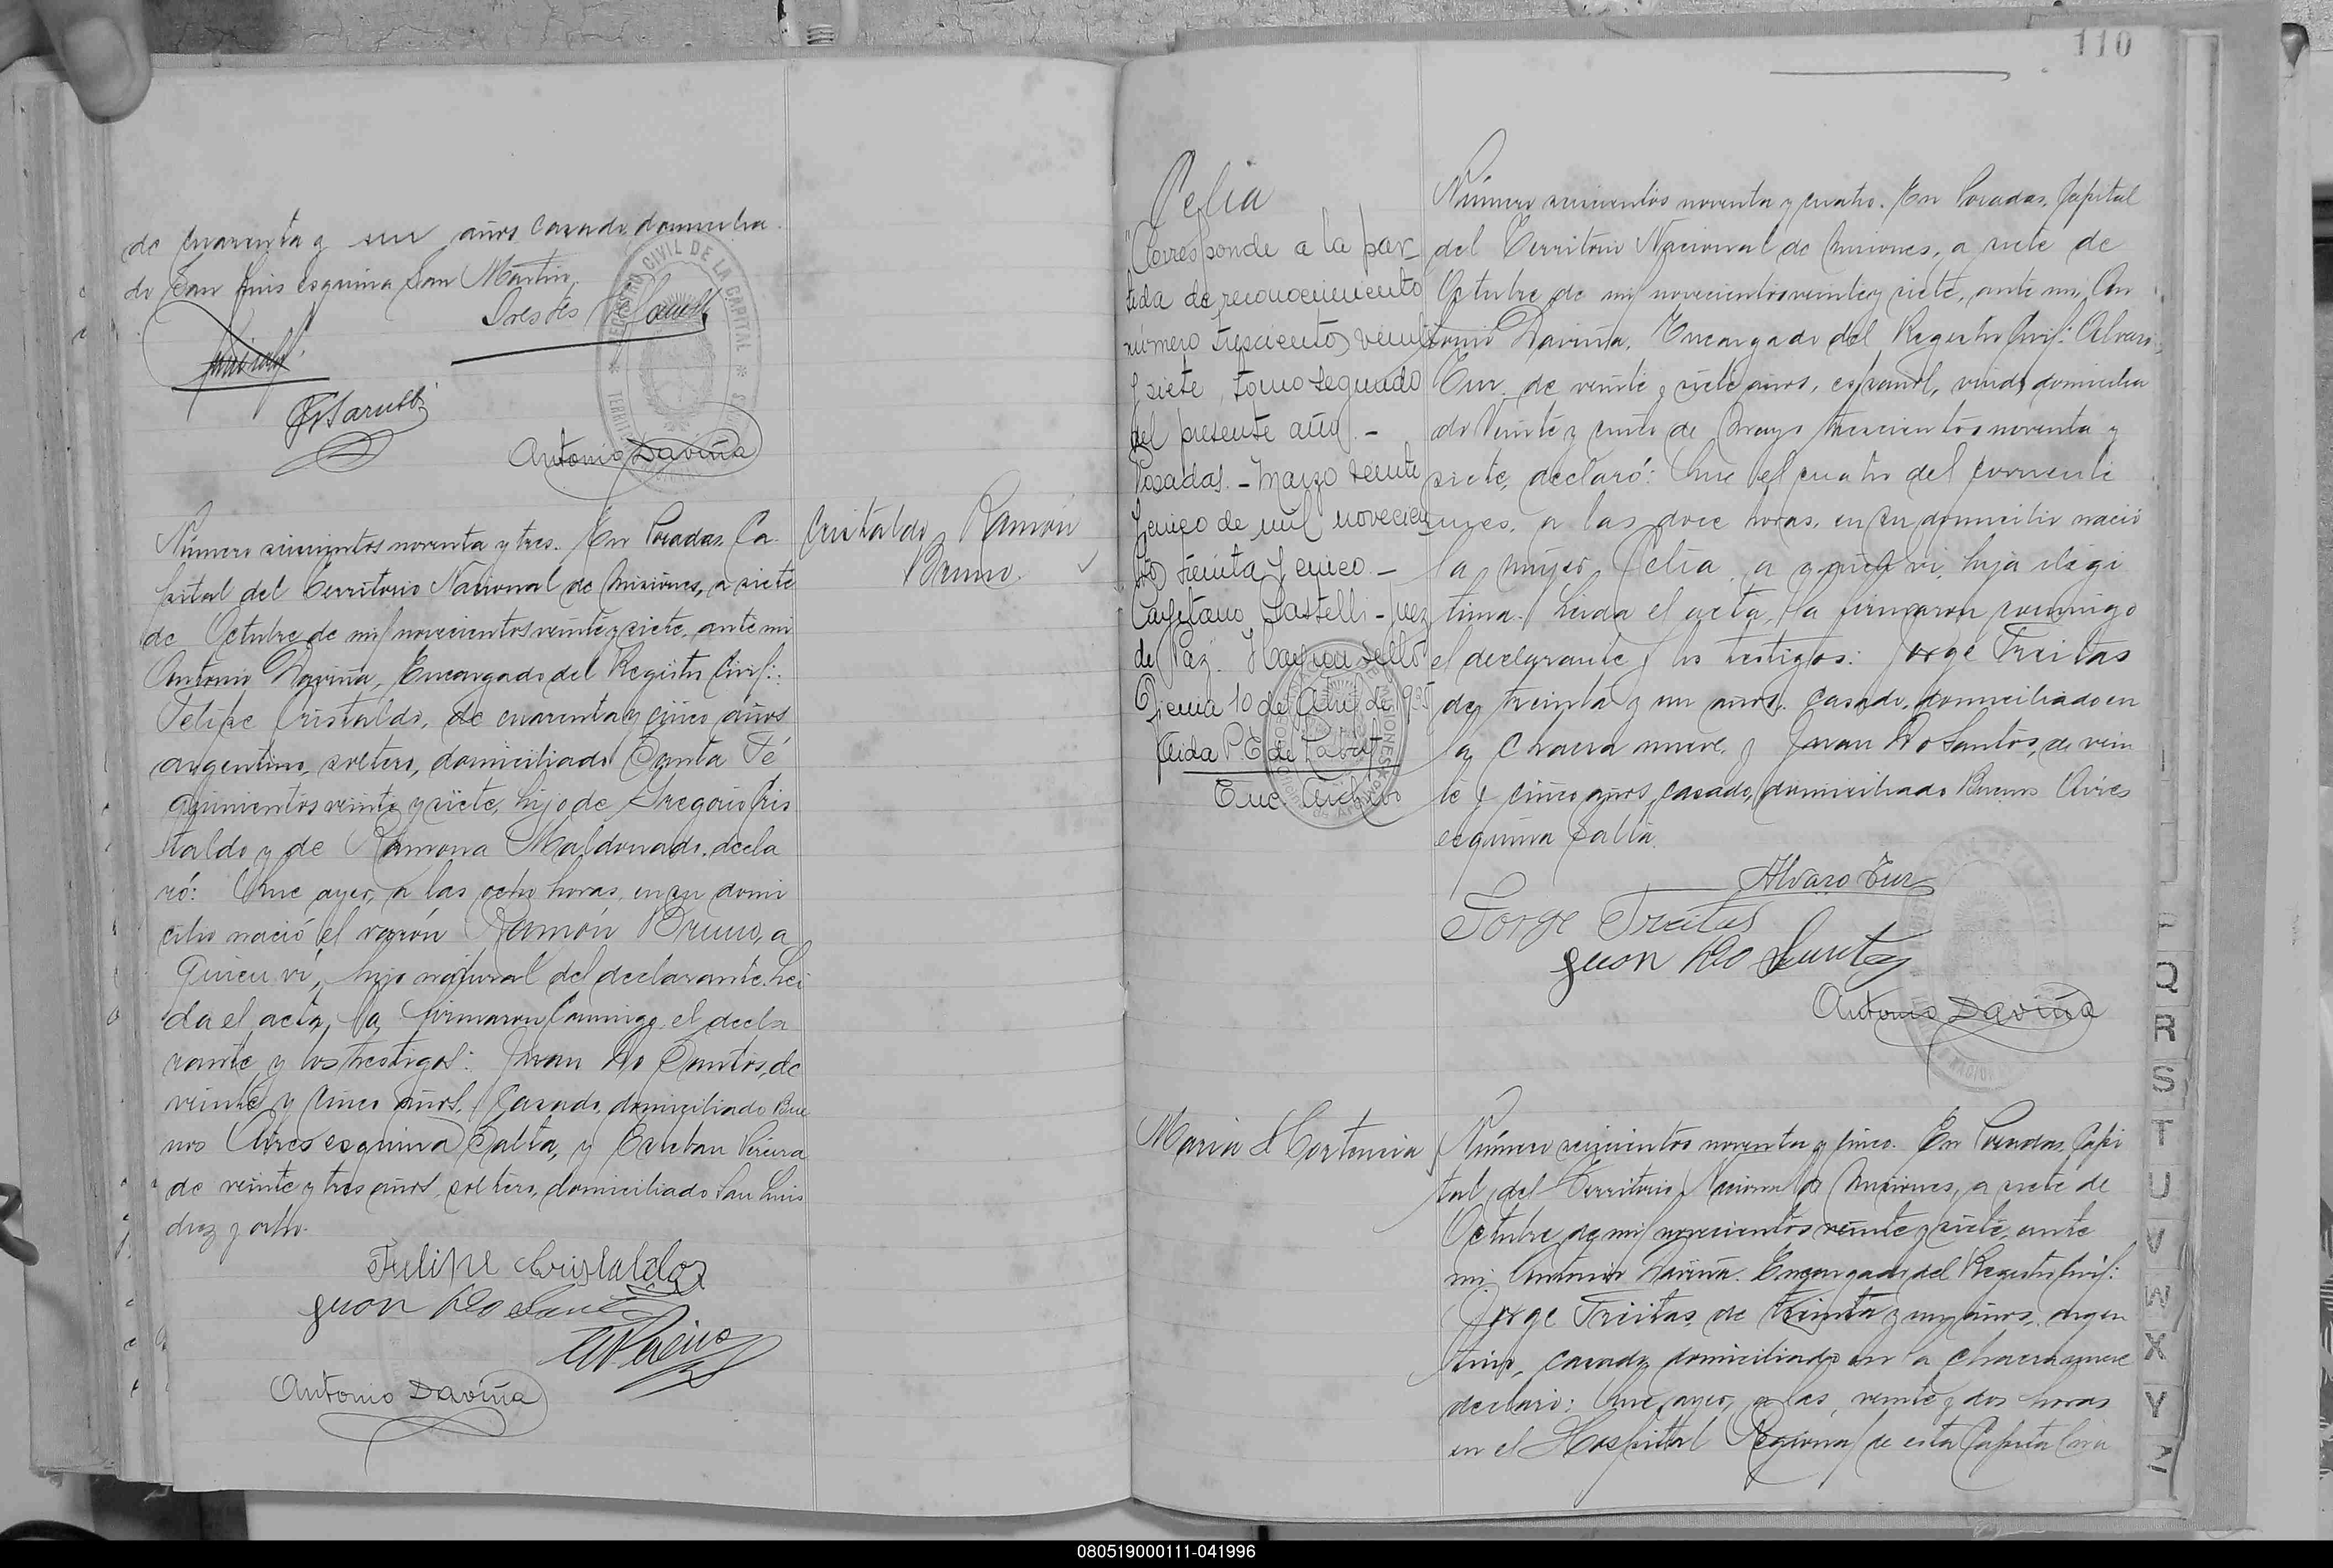 110
de cuarenta y un años, casado, domicilia
do San Luis esquina San Martín.
Orestes
Antonio Daviña
REGISTRO CIVIL DE LA CAPITAL
Cristaldo, Ramón
Bruno.
Número seiscientos noventa y tres. En Posadas, Ca
pital del Territorio Nacional de Misiones, a siete
de Octubre de mil novecientos veinte y siete, ante mi
Antonio Daviña, Encargado del Registro Civil:
Felipe Cristaldo, de cuarenta y cinco años
argentino, soltero, domiciliado Santa Fé
quinientos veinte y siete, hijo de Gregorio Cris
taldo y de Ramona Maldonado, decla
ró: Que ayer, a las ocho horas, en su domi
cilio nació el varón Ramón Bruno, a
quien ví, hijo natural del declarante. Lei
da el acta, la firmaron conmigo el decla
rante y los testigos: Juan Do Santos, de
veinte y cinco años, casado, domiciliado Bue
nos Aires esquina Salta, y Esteban Pereira
de veinte y tres años, soltero, domiciliado San Luis
diez y ocho.
Felipe Cristaldo
Juan Do Santos
E Pereira
Antonio Daviña
Celia
"Corresponde a la par_
tida de reconocimiento
número trescientos veinte
y siete, tomo segundo
del presente año. -
Posadas. - Marzo veinte
y cinco de mil novecien
tos treinta y cinco. -
Cayetano Castelli - Juez
de Paz. Hay un sello"
10 de Abril de 935
Enc. Archivo
Número seiscientos noventa y cuatro. En Posadas, Capital
del Territorio Nacional de Misiones, a siete de
Octubre de mil novecientos veinte y siete, ante mi, An
tonio Daviña, Encargado del Registro Civil: Alvaro
Tur, de veinte y siete años, español, viudo, domicilia
do Veinte y cinco de Mayo trescientos noventa y
siete, declaró: Que el cuatro del corriente
mes, a las doce horas, en su domicilio nació
la mujer Celia, a quien ví, hija ilegí
tima. Leida el acta, la firmaron conmigo
el declarante y los testigos: Jorge Freitas
de treinta y un años, casado, domiciliado en
la Chacra nueve, y Juan Do Santos, de vein
te y cinco años, casado, domiciliado Buenos Aires
esquina Salta.
Alvaro Tur
Jorge Freitas
Juan Do Santos
Antonio Daviña
Maria Hortencia
Número seiscientos noventa y cinco. En Posadas, Capi
tal del Territorio Nacional de Misiones, a siete de
Octubre de mil novecientos veinte y siete, ante
mi, Antonio Daviña, Encargado del Registro Civil:
Jorge Freitas, de treinta y un años, argen
tino, casado, domiciliado en la Chacra nueve
declaró: Que ayer, a las veinte y dos horas
en el Hospital Regional de esta Capital
P
Q
R
S
T
U
V
W
X
Y
Z
080519000111-041996